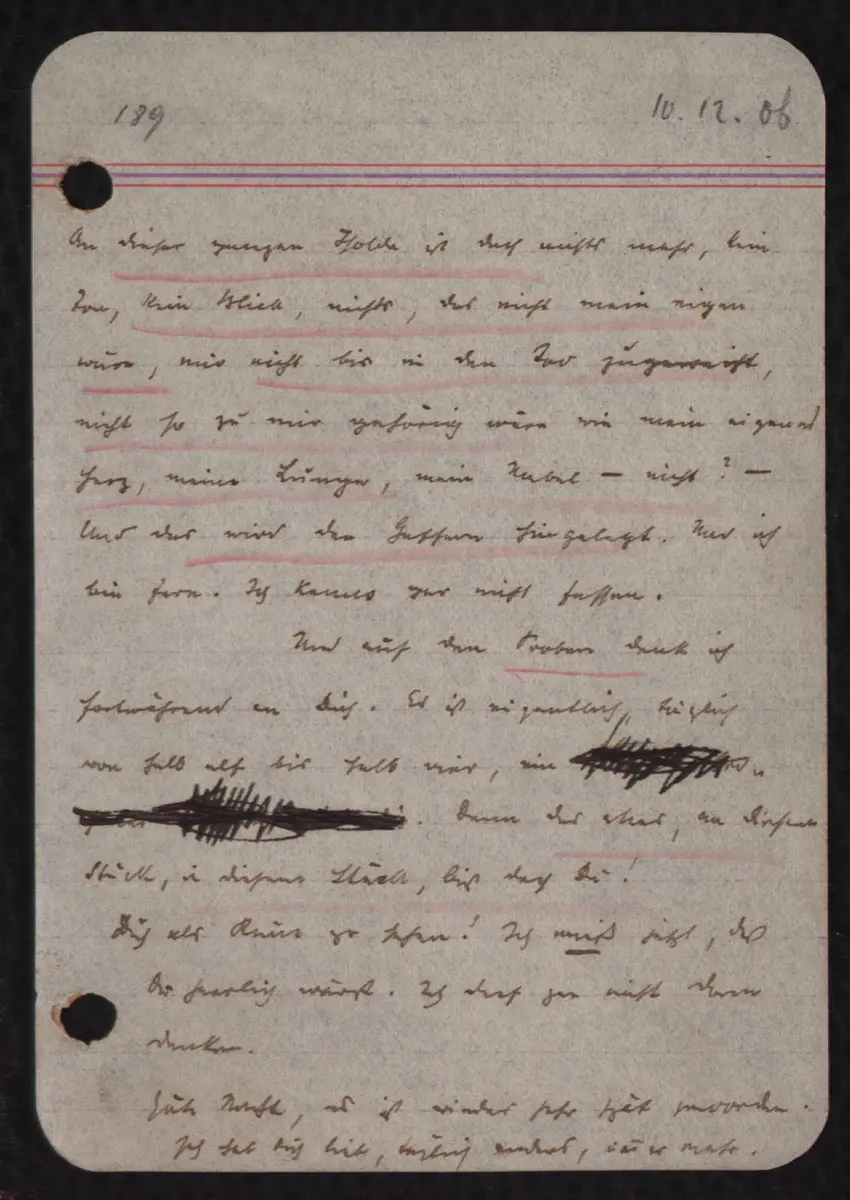 189
10. 12. 06
An dieser jungen Isolde ist doch nichts mehr, kein
Ton, kein Blick, nichts, das nicht mein eigen
wäre, mir nicht bis in den Tod
nicht so zu mir gehörig wäre wie mein eigenes
Herz, meine Lunge, mein Nabel — nicht? —
Und das wird den Gaffern hingelegt. Und ich
bin fern. Ich kanns gar nicht fassen.
Und auf den Proben denk ich
fortwährend an Dich. Es ist eigentlich, täglich
von halb elf bis halb vier, ein
. Denn das alles, an diesem
Stück, in diesem Stück, bist doch Du!
Dich als zu sehen! Ich weiß jetzt, daß
Du herrlich wärst. Ich darf gar nicht daran
denken.
Gute Nacht, es ist wieder sehr spät geworden.
Ich hab Dich lieb, täglich anders, immer mehr.